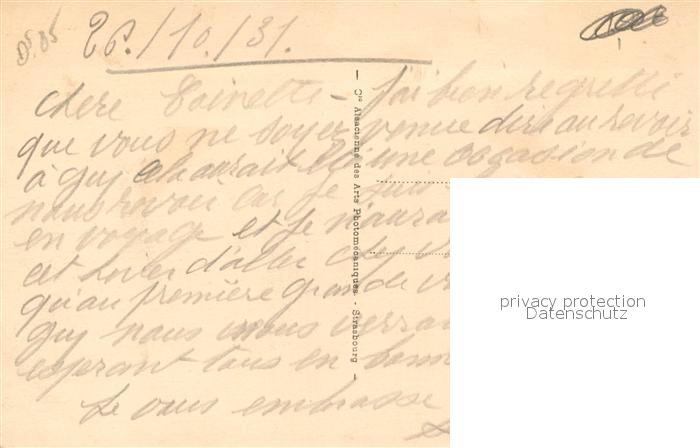 26./10./31.
Chère Toinette - J'ai bien regretté
que vous ne soyez venue dire au revoir
à Guy cela aurait été une occasion de
nous revoir car je suis
en voyage et je n'aurai
cet hiver d'aller chez v
qu'au première grande v
Guy nous nous verrons
esperant tous en bonn
Je vous embrasse
Cie Alsacienne des Arts Photomécaniques - Strasbourg
privacy protection
Datenschutz